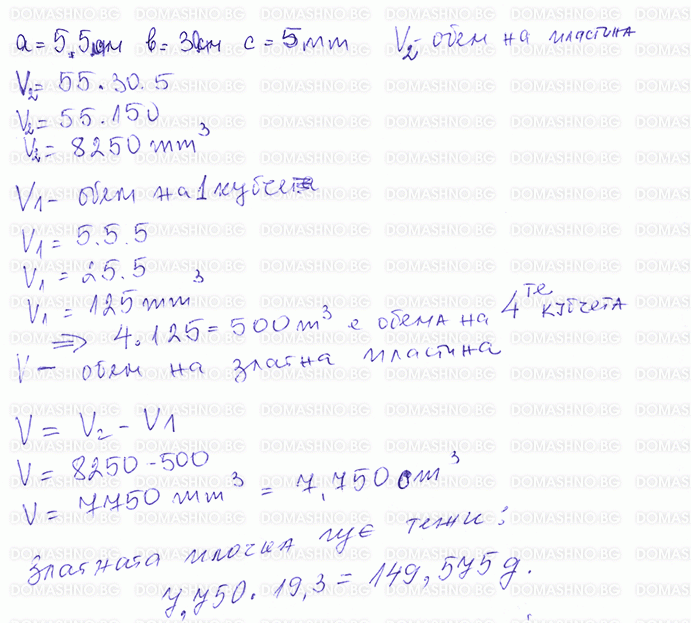 a = 5,5 см b = 3 см c = 5 mm V2 - обем на пластина
V2 = 55.30.5
V2 = 55.150
V2 = 8250 mm³
V1 - обем на 1 кубче
V1 = 5.5.5
V1 = 25.5
V1 = 125 mm³
⇒ 4.125 = 500 m³ е обема на 4те кубчета
V - обем на златна пластина
V = V2 - V1
V = 8250 - 500
V = 7750 mm³ = 7,750 cm³
Златната плочка ще тежи:
7,750 . 19,3 = 149,575 g.